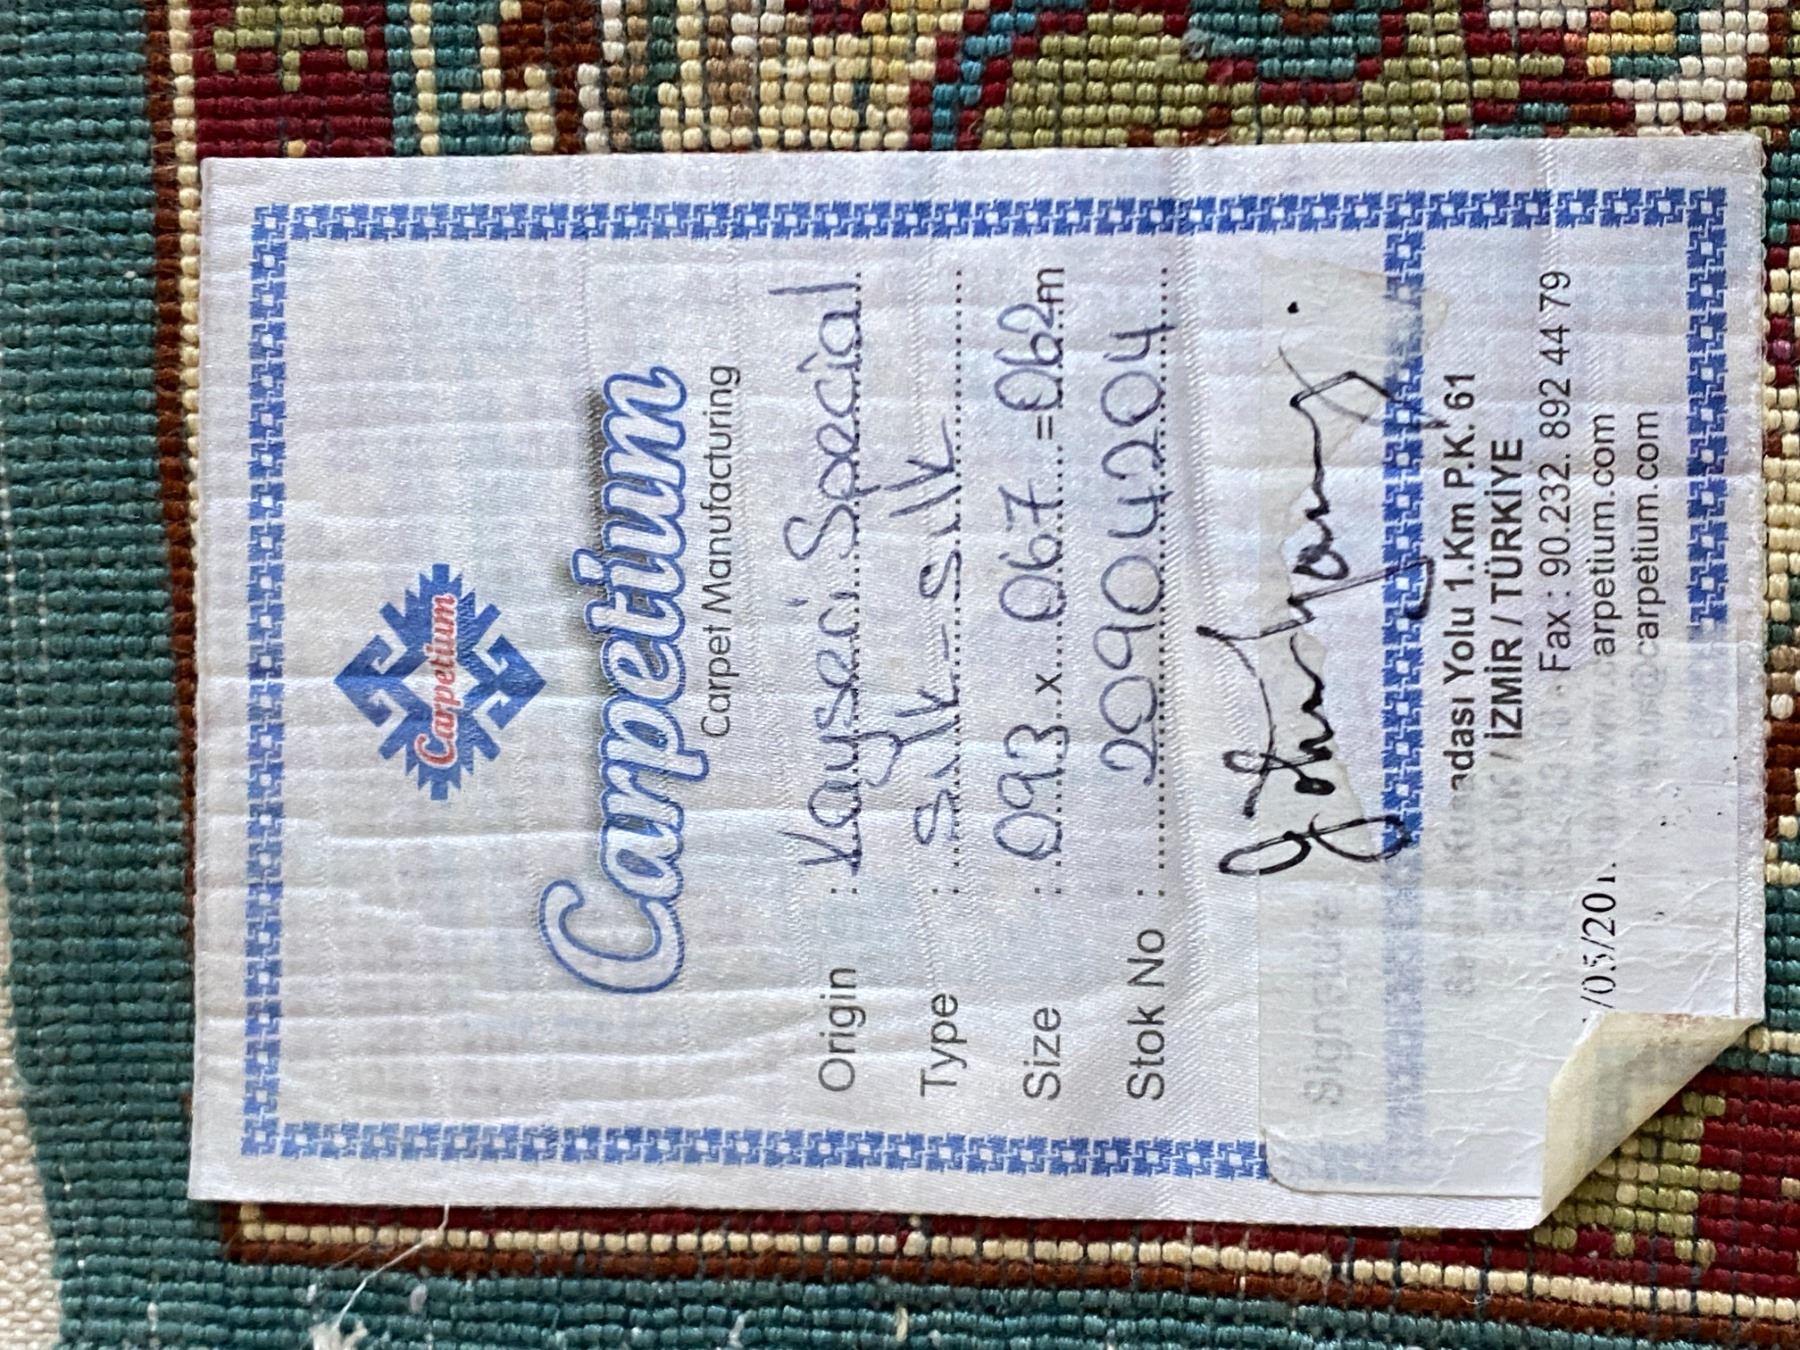 Carpetium
Carpetium
Carpet Manufacturing
Origin : Kayseri Special
Type : Silk - Silk
Size : 093 x 067 = 062 m
Stok No : 29904204
Signature
adası Yolu 1.Km P.K. 61
/ İZMİR / TÜRKİYE
Fax : 90.232. 892 44 79
arpetium.com
@carpetium.com
/05/201